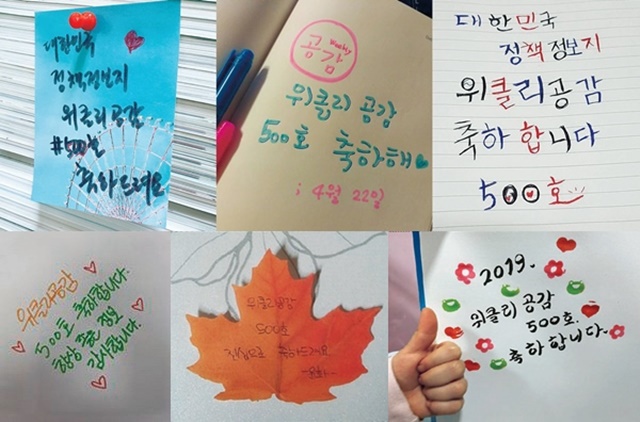 대한민국
정책정보지
위클리 공감
#500호
축하드려요
공감
위클리 공감
500호 축하해
; 4월 22일
대한민국
정책 정보지
위클리공감
축하 합니다
500호
위클리공감
500호 축하합니다.
항상 좋은 정보
감사합니다.
위클리공감
500호
진심으로 축하드려요
2019.
위클리 공감
500호.
축하 합니다.